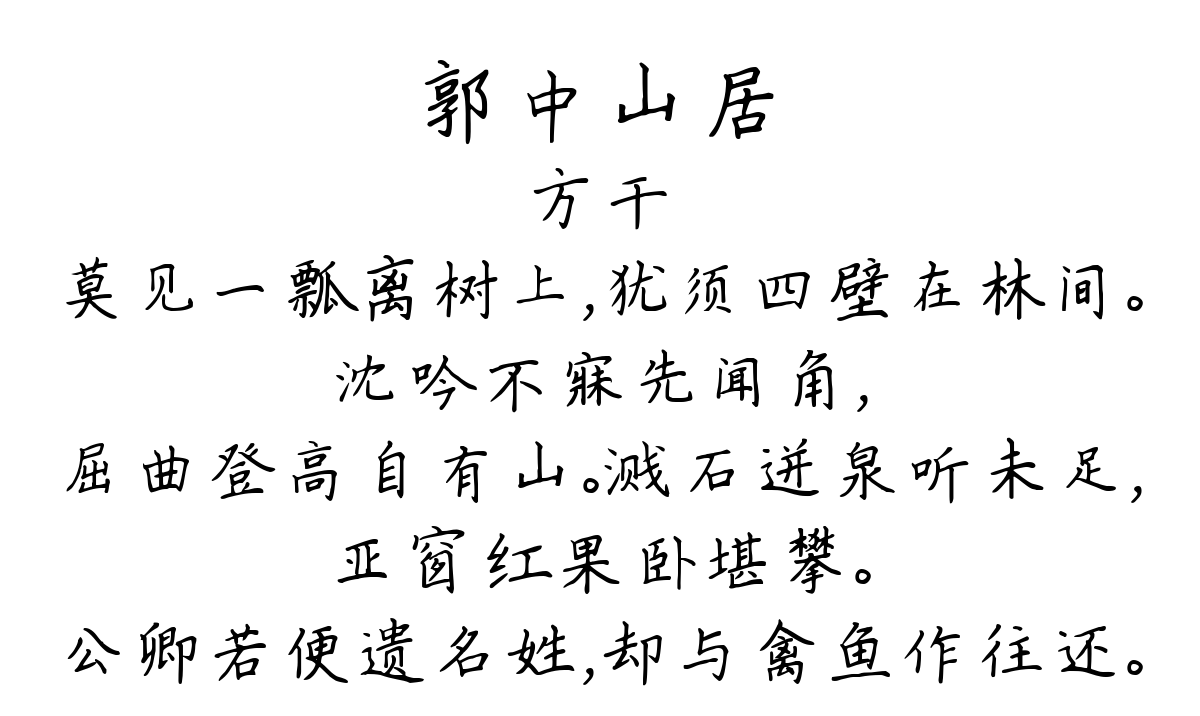 郭中山居
方干
莫见一瓢离树上,犹须四壁在林间。
沈吟不寐先闻角,
屈曲登高自有山。溅石迸泉听未足,
亚窗红果卧堪攀。
公卿若便遗名姓,却与禽鱼作往还。